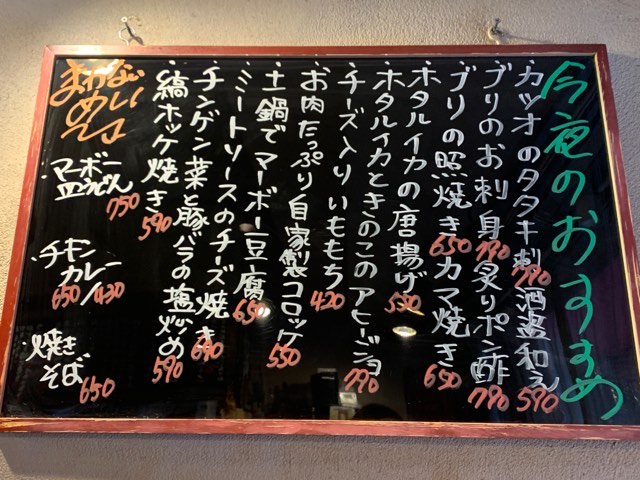 今夜のおすすめ
・カツオのタタキ刺790 酒盗和え590
・ブリのお刺身790 炙りポン酢790
・ブリの照焼き650 カマ焼き650
・ホタルイカの唐揚げ
・ホタルイカときのこのアヒージョ790
・チーズ入りいももち420
・お肉たっぷり自家製コロッケ550
・土鍋でマーボー豆腐650
・ミートソースのチーズ焼き690
・チンゲン菜と豚バラの塩炒め590
・縞ホッケ焼き590
まかない
めし
マーボー
皿うどん
750
チキン
カレー
650/430
焼き
そば
650